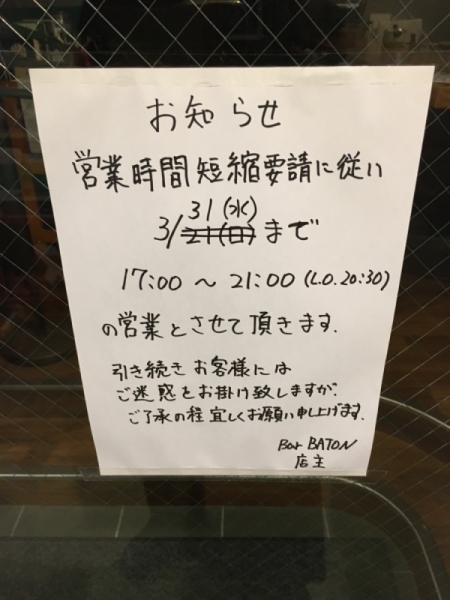 お知らせ
営業時間短縮要請に従い
31(水)
3/21(日)まで
17:00 〜 21:00 (L.O.20:30)
の営業とさせて頂きます.
引き続きお客様には
ご迷惑をお掛け致しますが、
ご了承の程宜しくお願い申し上げます.
Bar BATON
店主